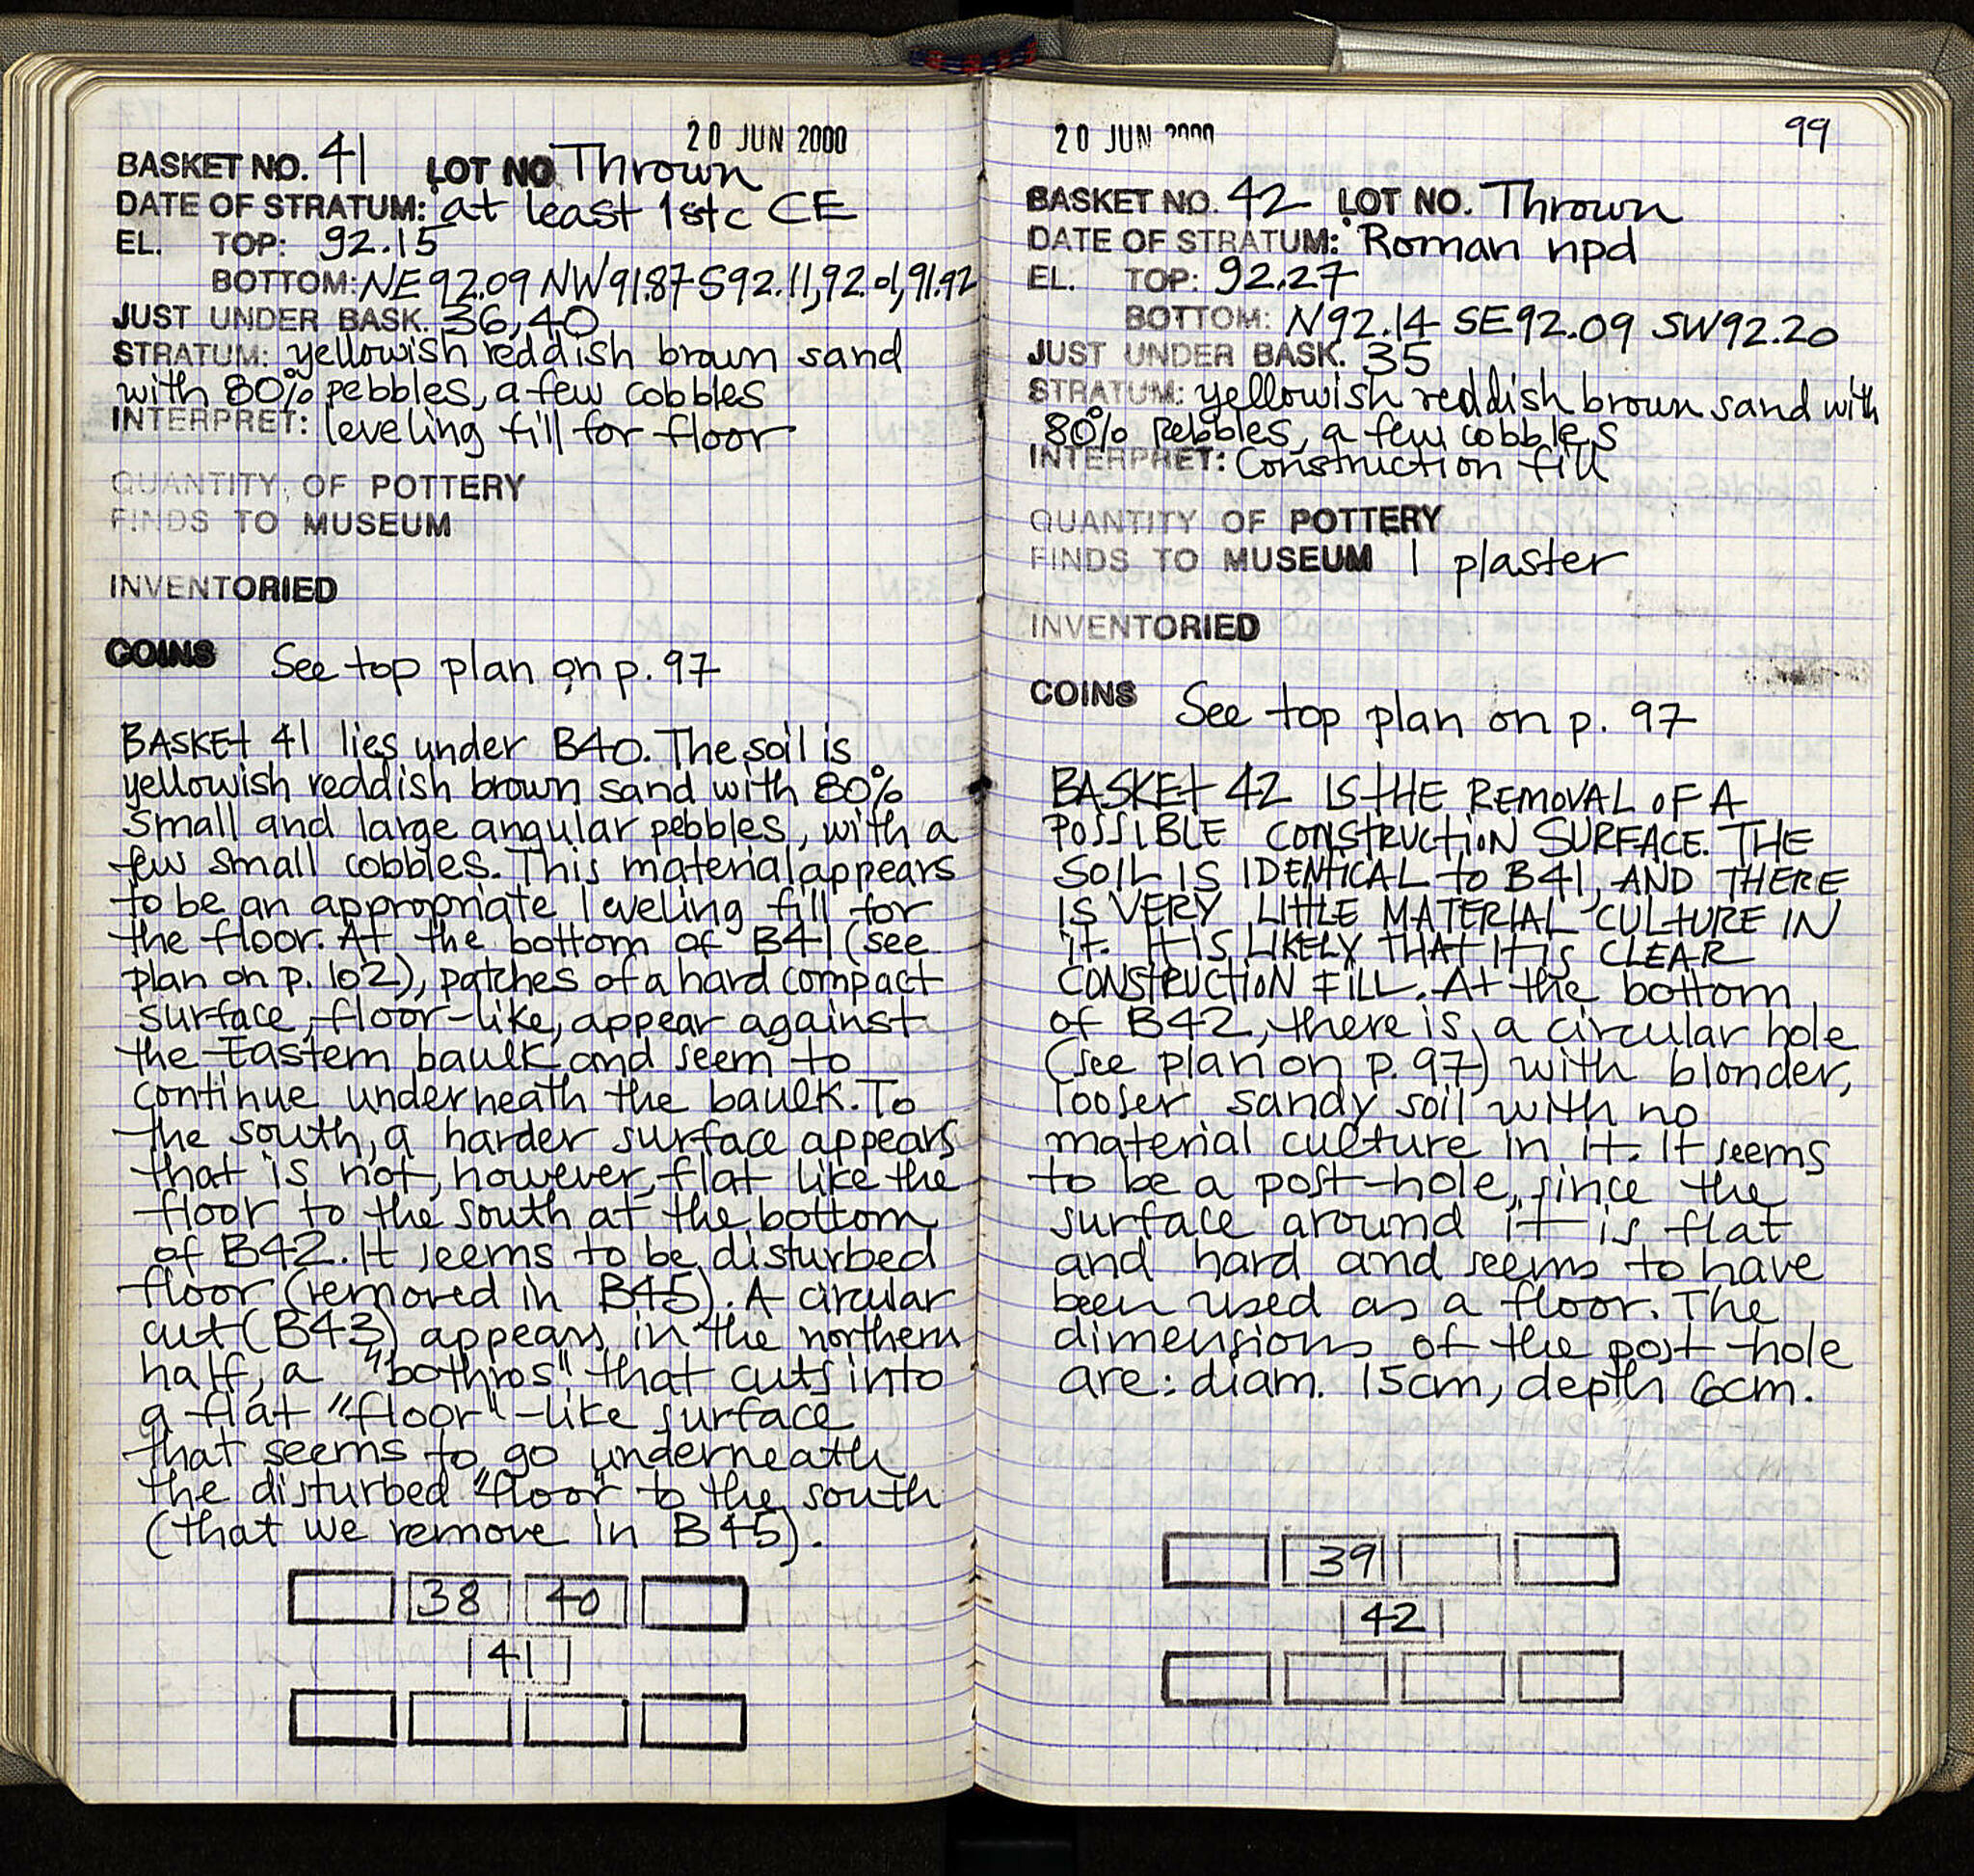 20 JUN 2000
BASKET NO. 41 LOT NO Thrown
DATE OF STRATUM: at least 1st c CE
EL. TOP: 92.15
BOTTOM: NE 92.09 NW 91.87 S 92.11, 92.01, 91.92
JUST UNDER BASK. 36, 40
STRATUM: yellowish reddish brown sand
with 80% pebbles, a few cobbles
INTERPRET: leveling fill for floor
QUANTITY OF POTTERY
FINDS TO MUSEUM
INVENTORIED
COINS See top plan on p. 97
BASKET 41 lies under B40. The soil is
yellowish reddish brown sand with 80%
small and large angular pebbles, with a
few small cobbles. This material appears
to be an appropriate leveling fill for
the floor. At the bottom of B41 (see
plan on p. 102), patches of a hard compact
surface, floor-like, appear against
the Eastern baulk and seem to
continue underneath the baulk. To
the south, a harder surface appears
that is not, however, flat like the
floor to the south at the bottom
of B42. It seems to be disturbed
floor (removed in B45). A circular
cut (B43) appears in the northern
half, a "bothros" that cuts into
a flat "floor"-like surface
that seems to go underneath
the disturbed "floor" to the south
(that we remove in B45).
38 40
41
20 JUN 2000
99
BASKET NO. 42 LOT NO. Thrown
DATE OF STRATUM: Roman npd
EL. TOP: 92.27
BOTTOM: N 92.14 SE 92.09 SW 92.20
JUST UNDER BASK. 35
STRATUM: yellowish reddish brown sand with
80% pebbles, a few cobbles
INTERPRET: Construction fill
QUANTITY OF POTTERY
FINDS TO MUSEUM 1 plaster
INVENTORIED
COINS See top plan on p. 97
BASKET 42 IS THE REMOVAL OF A
POSSIBLE CONSTRUCTION SURFACE. THE
SOIL IS IDENTICAL to B41, AND THERE
IS VERY LITTLE MATERIAL CULTURE IN
IT. IT IS LIKELY THAT IT IS CLEAR
CONSTRUCTION FILL. At the bottom
of B42, there is a circular hole
(see plan on p. 97) with blonder,
looser sandy soil with no
material culture in it. It seems
to be a post-hole, since the
surface around it is flat
and hard and seems to have
been used as a floor. The
dimensions of the post-hole
are: diam. 15cm, depth 6cm.
39
42